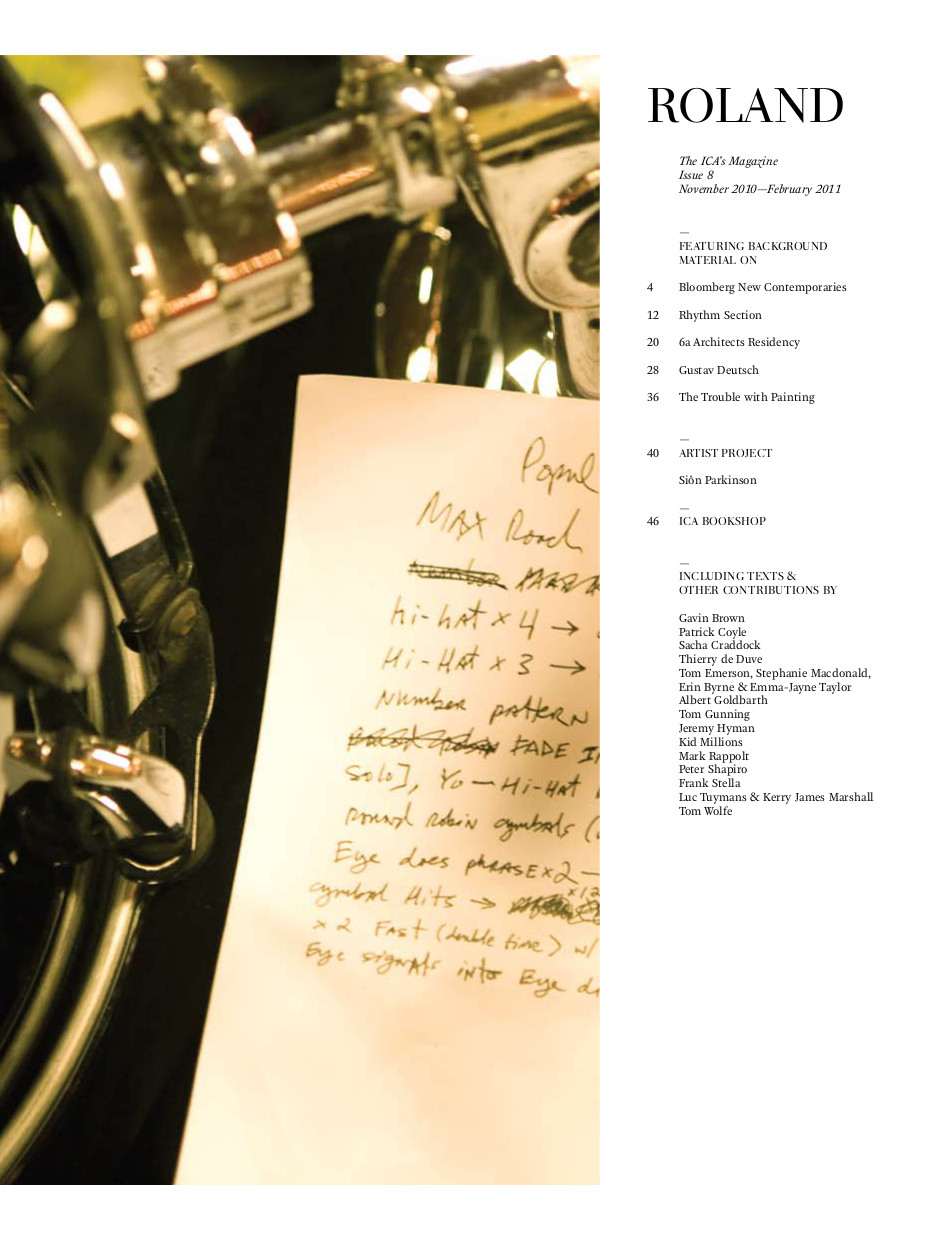 ROLAND
The ICA's Magazine
Issue 8
November 2010—February 2011
—
FEATURING BACKGROUND
MATERIAL ON
4 Bloomberg New Contemporaries
12 Rhythm Section
20 6a Architects Residency
28 Gustav Deutsch
36 The Trouble with Painting
—
40 ARTIST PROJECT
Siôn Parkinson
—
46 ICA BOOKSHOP
—
INCLUDING TEXTS &
OTHER CONTRIBUTIONS BY
Gavin Brown
Patrick Coyle
Sacha Craddock
Thierry de Duve
Tom Emerson, Stephanie Macdonald,
Erin Byrne & Emma-Jayne Taylor
Albert Goldbarth
Tom Gunning
Jeremy Hyman
Kid Millions
Mark Rappolt
Peter Shapiro
Frank Stella
Luc Tuymans & Kerry James Marshall
Tom Wolfe
MAX Roach
Hi-hAt × 4 →
Hi-HAt × 3 →
Number pattern
FADE
Solo], Yo — Hi-HAt
round robin cymbals (
Eye does phrASE×2 —
cymbal Hits → ×12
×2 FAst (double time) w/
Eye signals into Eye